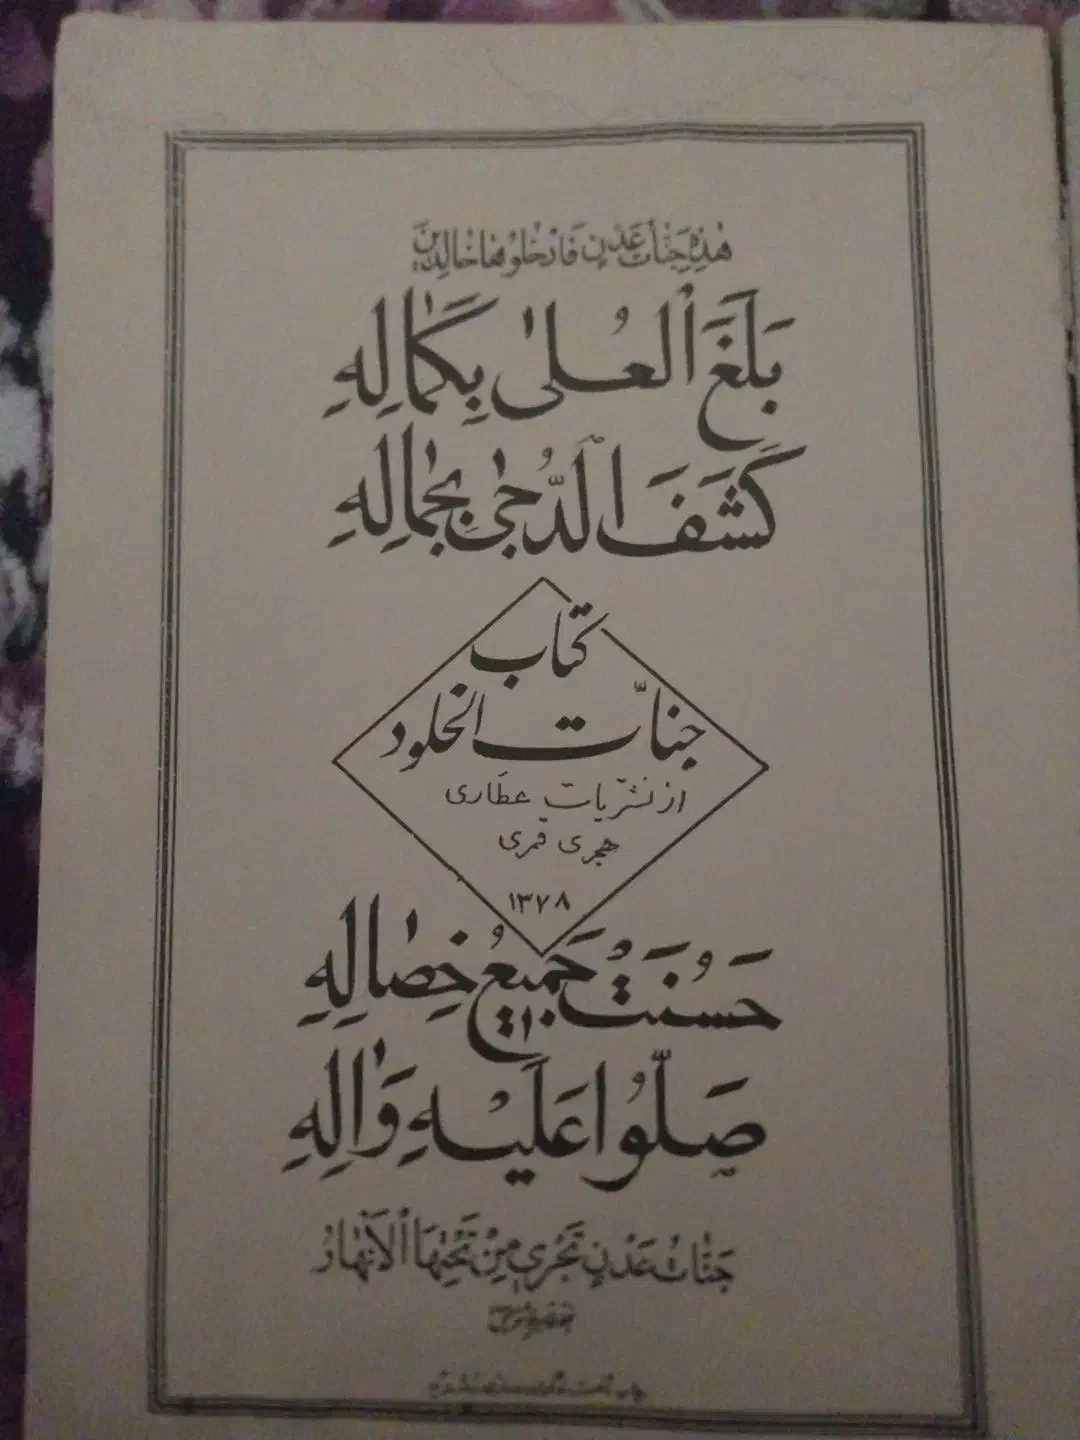 هٰذِهِ جَنّٰاتُ عَدْنٍ فَادْخُلُوهٰا خٰالِدِينَ
بَلَغَ الْعُلىٰ بِكَمٰالِهِ
كَشَفَ الدُّجىٰ بِجَمٰالِهِ
کتاب
جنّات الخلود
از نشریات عطاری
هجری قمری
۱۳۷۸
حَسُنَتْ جَمِيعُ خِصٰالِهِ
صَلُّوا عَلَيْهِ وَاٰلِهِ
جَنّٰاتُ عَدْنٍ تَجْرِي مِنْ تَحْتِهَا الْأَنْهٰارُ